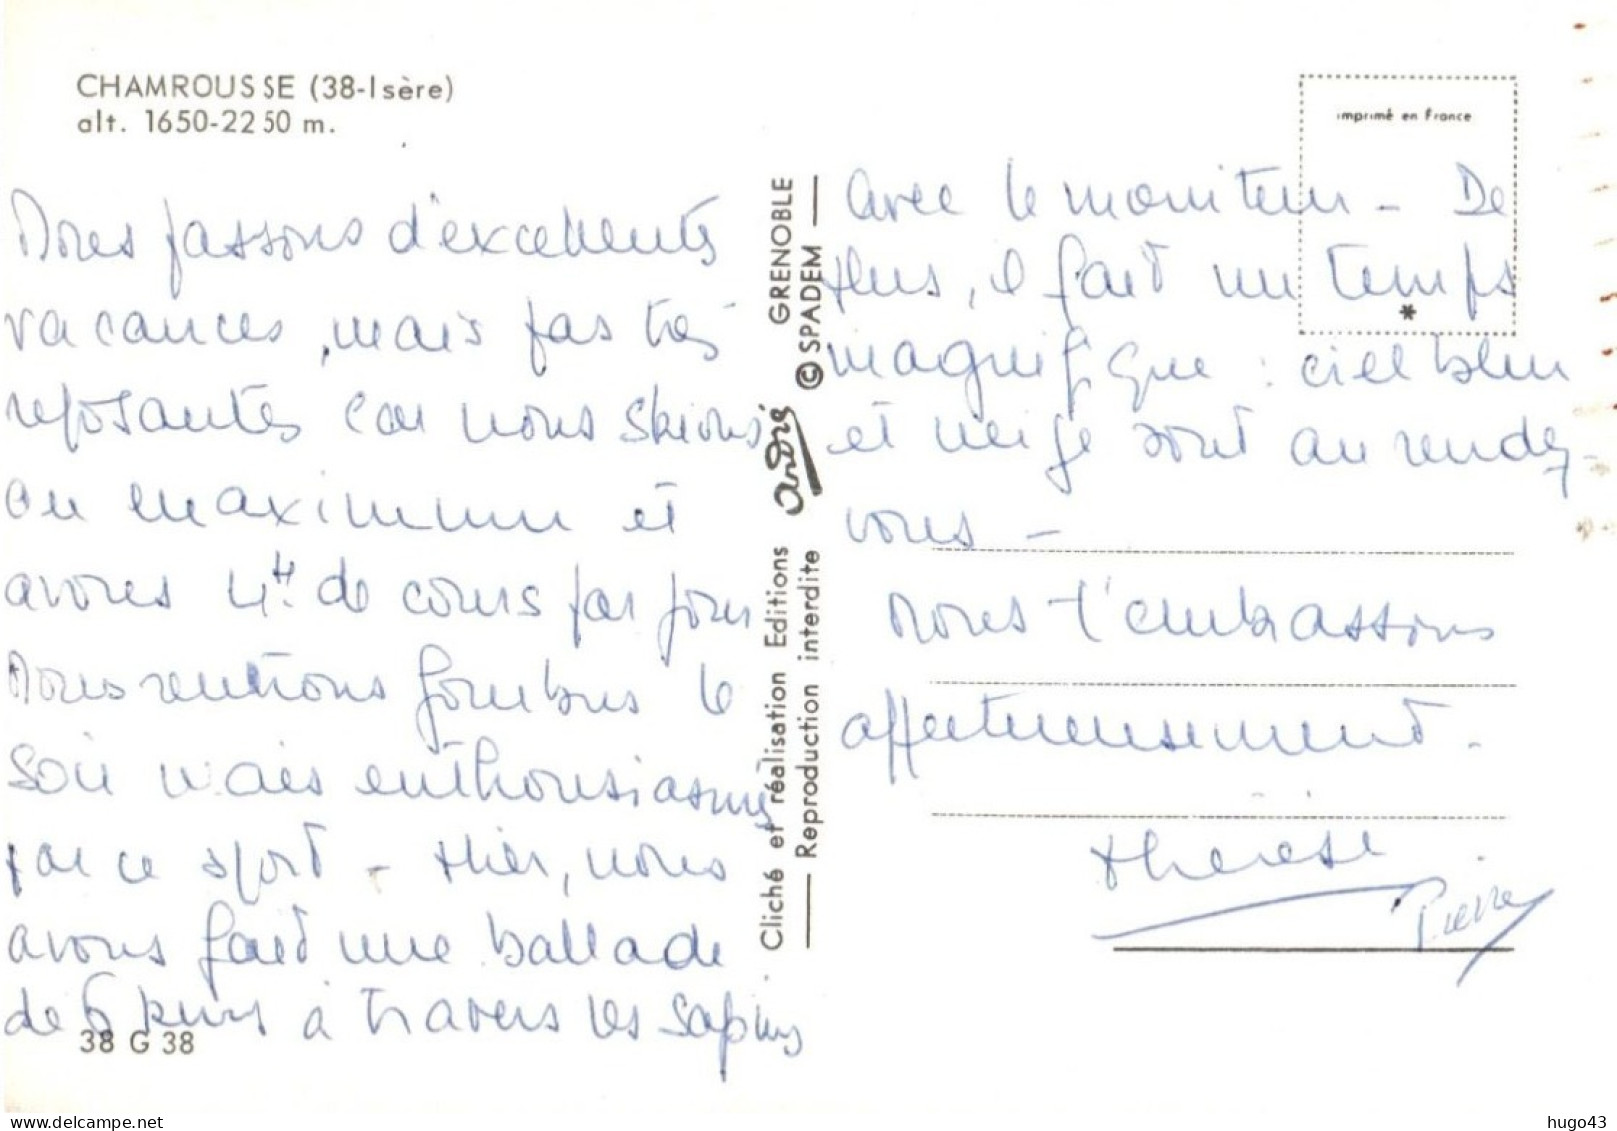 CHAMROUSSE (38-Isère)
alt. 1650-2250 m.
Nous passons d'excellentes
vacances, mais pas très
reposantes car nous skions
au maximum et
avons 4H. de cours par jour
Nous rentrons fourbus le
soir mais enthousiasmés
par ce sport - Hier, nous
avons fait une ballade
de 6 kms à travers les sapins
38 G 38
Cliché et réalisation Editions André GRENOBLE
Reproduction interdite © SPADEM
imprimé en France
*
avec le moniteur - De
plus, il fait un temps
magnifique : ciel bleu
et neige sont au rendez-
vous -
Nous t'embrassons
affectueusement.
Thérèse
Pierre
delcampe.net
hugo43